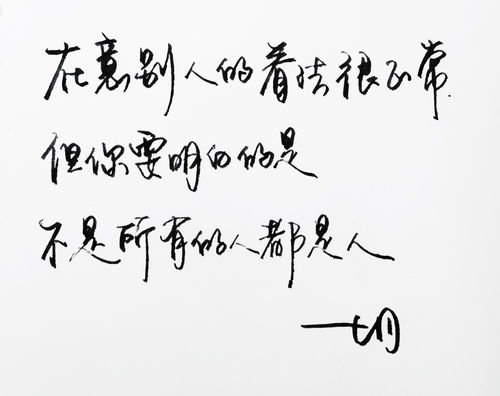 在意别人的看法很正常.
但你要明白的是
不是所有的人都是人